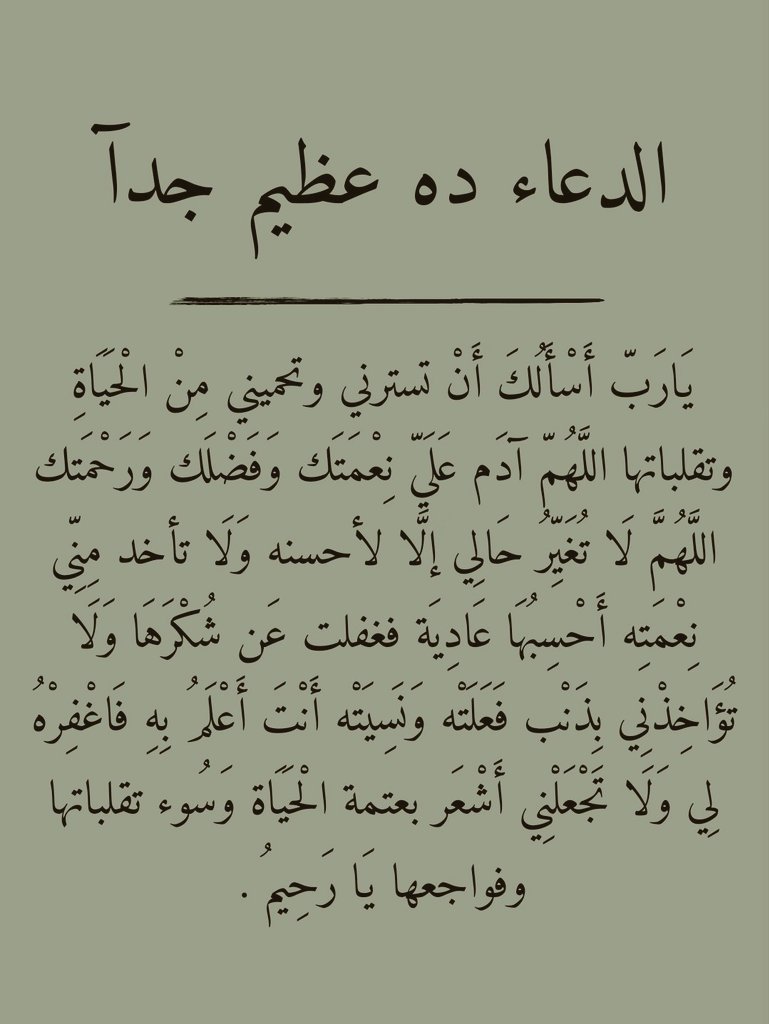 الدعاء ده عظيم جدآ
يَارَبّ أَسْأَلُكَ أَنْ تسترني وتحميني مِنْ الْحَيَاةِ
وتقلباتها اللَّهُمّ آدَم عَلَيّ نِعْمَتَك وَفَضْلَك وَرَحْمَتك
اللَّهُمَّ لَا تُغَيِّرُ حَالِي إلَّا لأحسنه وَلَا تأخد مِنِّي
نِعْمَتِه أَحْسِبُهَا عَادِيَة فغفلت عَن شُكْرَهَا وَلَا
تُؤَاخِذْنِي بِذَنْب فَعَلَتْه وَنَسِيَتْه أَنْتَ أَعْلَمُ بِهِ فَاغْفِرْهُ
لِي وَلَا تَجْعَلْنِي أَشْعَر بعتمة الْحَيَاة وَسُوء تقلباتها
وفواجعها يَا رَحِيمُ .